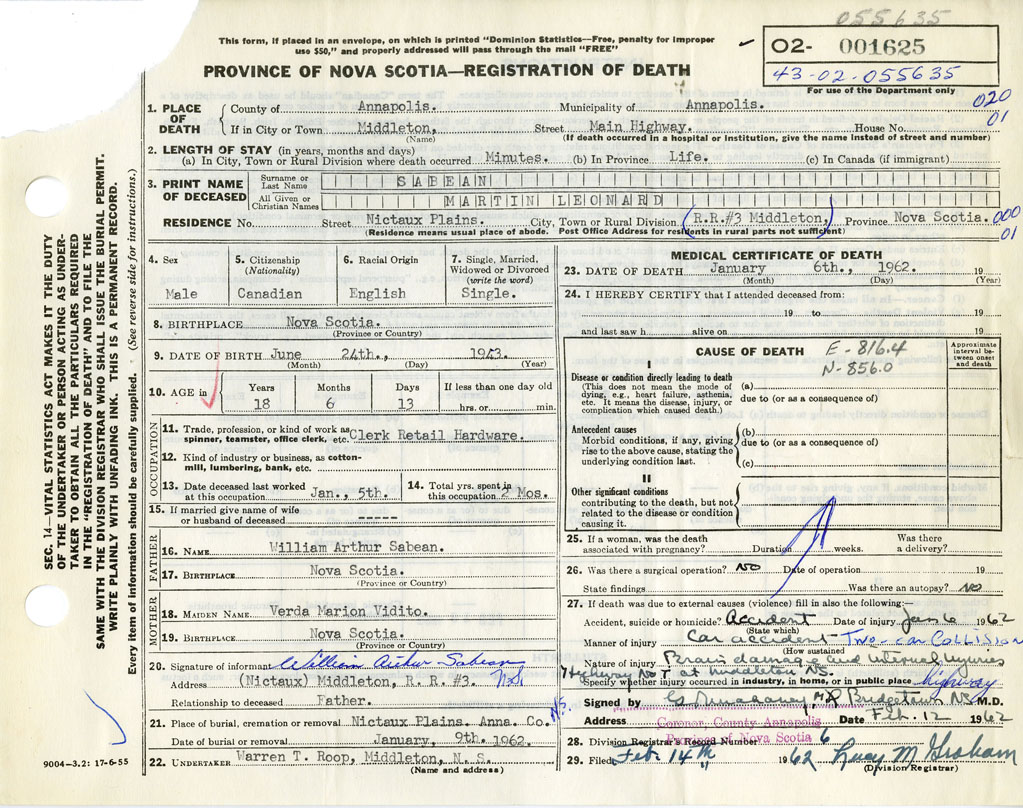 055635
This form, if placed in an envelope, on which is printed "Dominion Statistics—Free, penalty for improper
use $50," and properly addressed will pass through the mail "FREE"
02- 001625
43-02-055635
For use of the Department only
PROVINCE OF NOVA SCOTIA—REGISTRATION OF DEATH
020
01
1. PLACE OF DEATH County of Annapolis. Municipality of Annapolis.
If in City or Town Middleton, Street Main Highway. House No.
(Name) (If death occurred in a hospital or institution, give the name instead of street and number)
2. LENGTH OF STAY (in years, months and days)
(a) In City, Town or Rural Division where death occurred Minutes. (b) In Province Life. (c) In Canada (if immigrant)
3. PRINT NAME OF DECEASED Surname or Last Name SABEAN
All Given or Christian Names MARTIN LEONARD
RESIDENCE No. Street Nictaux Plains. City, Town or Rural Division (R.R.#3 Middleton,) Province Nova Scotia. 000
01
(Residence means usual place of abode. Post Office Address for residents in rural parts not sufficient)
4. Sex Male
5. Citizenship (Nationality) Canadian
6. Racial Origin English
7. Single, Married, Widowed or Divorced (write the word) Single.
8. BIRTHPLACE Nova Scotia.
(Province or Country)
9. DATE OF BIRTH June 24th., 1943.
(Month) (Day) (Year)
10. AGE in Years 18 Months 6 Days 13 If less than one day old hrs. or min.
OCCUPATION
11. Trade, profession, or kind of work as
spinner, teamster, office clerk, etc. Clerk Retail Hardware.
12. Kind of industry or business, as cotton-
mill, lumbering, bank, etc.
13. Date deceased last worked at this occupation Jan., 5th. 14. Total yrs. spent in this occupation 2 Mos.
15. If married give name of wife
or husband of deceased -----
FATHER
16. NAME William Arthur Sabean.
17. BIRTHPLACE Nova Scotia.
(Province or Country)
MOTHER
18. MAIDEN NAME Verda Marion Vidito.
19. BIRTHPLACE Nova Scotia.
(Province or Country)
20. Signature of informant William Arthur Sabean
Address (Nictaux) Middleton, R. R. #3. N.S.
Relationship to deceased Father.
21. Place of burial, cremation or removal Nictaux Plains. Anna. Co. N.S.
Date of burial or removal January, 9th. 1962.
22. UNDERTAKER Warren T. Roop, Middleton, N. S.
(Name and address)
MEDICAL CERTIFICATE OF DEATH
23. DATE OF DEATH January 6th., 1962. 19
(Month) (Day) (Year)
24. I HEREBY CERTIFY that I attended deceased from:
19 to 19
and last saw h alive on 19
CAUSE OF DEATH E-816.4
N-856.0
Approximate interval between onset and death
I
Disease or condition directly leading to death
(This does not mean the mode of
dying, e.g., heart failure, asthenia,
etc. It means the disease, injury, or
complication which caused death.)
(a)
due to (or as a consequence of)
Antecedent causes
Morbid conditions, if any, giving
rise to the above cause, stating the
underlying condition last.
(b)
due to (or as a consequence of)
(c)
II
Other significant conditions
contributing to the death, but not
related to the disease or condition
causing it.
25. If a woman, was the death
associated with pregnancy? Duration weeks. Was there a delivery?
26. Was there a surgical operation? No Date of operation 19
State findings Was there an autopsy? No
27. If death was due to external causes (violence) fill in also the following:—
Accident, suicide or homicide? Accident Date of injury Jan 6 1962
(State which)
Manner of injury Car accident - Two-car COLLISION
(How sustained)
Nature of injury Brain damage and internal injuries
Highway No 1 at Middleton NS.
Specify whether injury occurred in industry, in home, or in public place highway
Signed by M.D.
Address Coroner, County Annapolis Date Feb. 12 1962
Province of Nova Scotia
28. Division Registrar's Record Number 6
29. Filed Feb 14th 1962
(Division Registrar)
SEC. 14—VITAL STATISTICS ACT MAKES IT THE DUTY
OF THE UNDERTAKER OR PERSON ACTING AS UNDER-
TAKER TO OBTAIN ALL THE PARTICULARS REQUIRED
IN THE "REGISTRATION OF DEATH" AND TO FILE THE
SAME WITH THE DIVISION REGISTRAR WHO SHALL ISSUE THE BURIAL PERMIT.
WRITE PLAINLY WITH UNFADING INK. THIS IS A PERMANENT RECORD.
Every item of information should be carefully supplied. (See reverse side for instructions.)
9004-3.2: 17-6-55